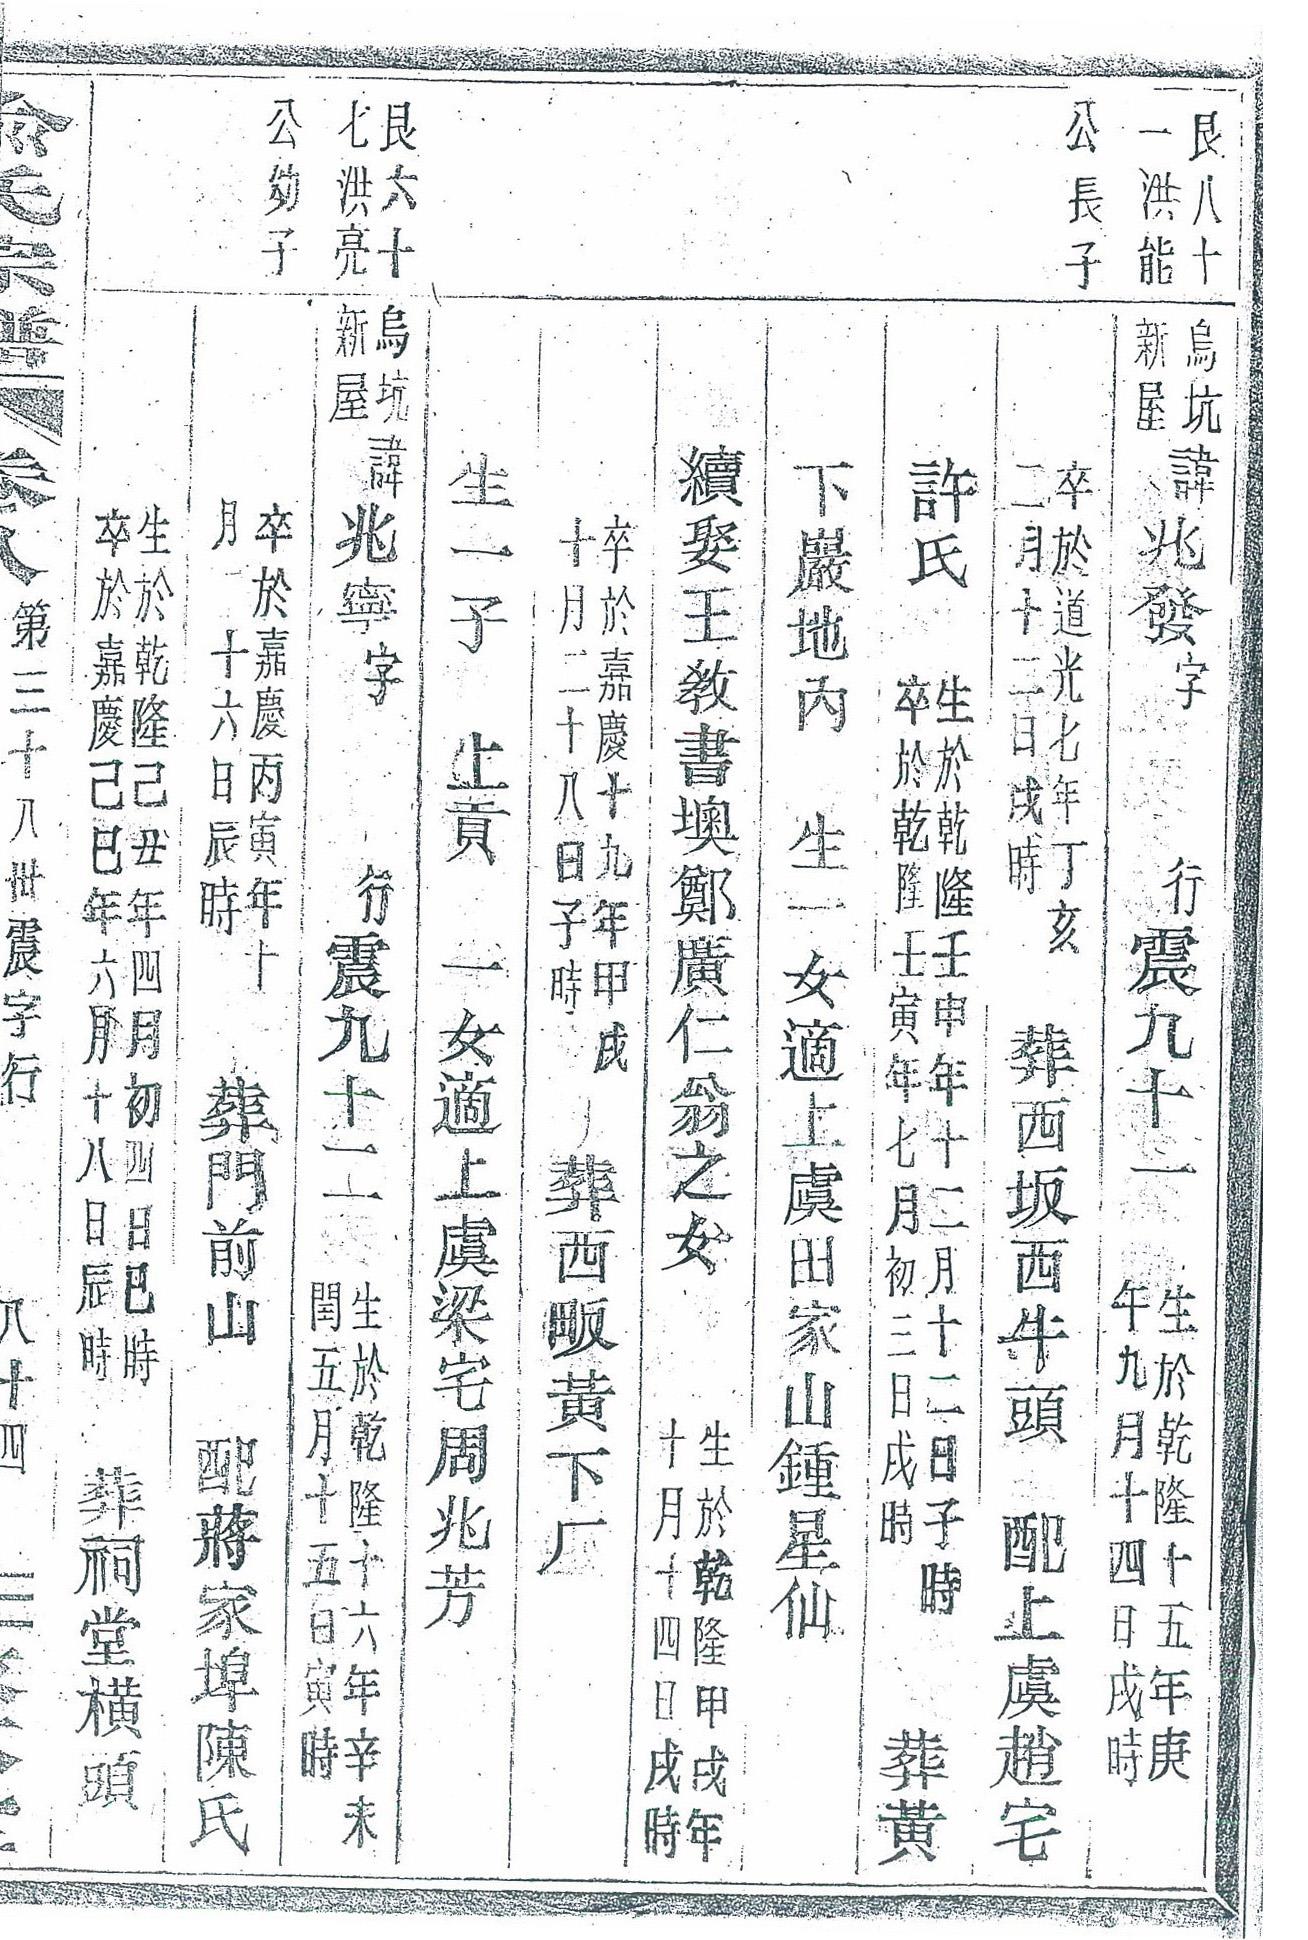 艮八十
一洪能
公長子
烏坑
新屋
諱兆發字 行震九十一
生於乾隆十五年庚
午九月十四日戌時
卒於道光七年丁亥
二月十二日戌時
葬西坂西牛頭 配上虞趙宅
許氏
生於乾隆壬申年十二月十二日子時
卒於乾隆壬寅年七月初三日戌時
葬黃
下巖地內 生一女適上虞田家山鍾星仙
續娶王教書墺鄭廣仁翁之女
生於乾隆甲戌年
十月十四日戌時
卒於嘉慶十九年甲戌
十月二十八日子時
葬西畈黃下厂
生一子 上貢 一女適上虞梁宅周兆芳
艮六十
七洪亮
公幼子
烏坑
新屋
諱兆寧字 行震九十二
生於乾隆十六年辛未
閏五月十五日寅時
卒於嘉慶丙寅年十
月二十六日辰時
葬門前山 配蔣家埠陳氏
生於乾隆己丑年四月初四日巳時
卒於嘉慶己巳年六月十八日辰時
葬祠堂橫頭
俞氏宗譜 卷八 第三十八世震字行 八十四